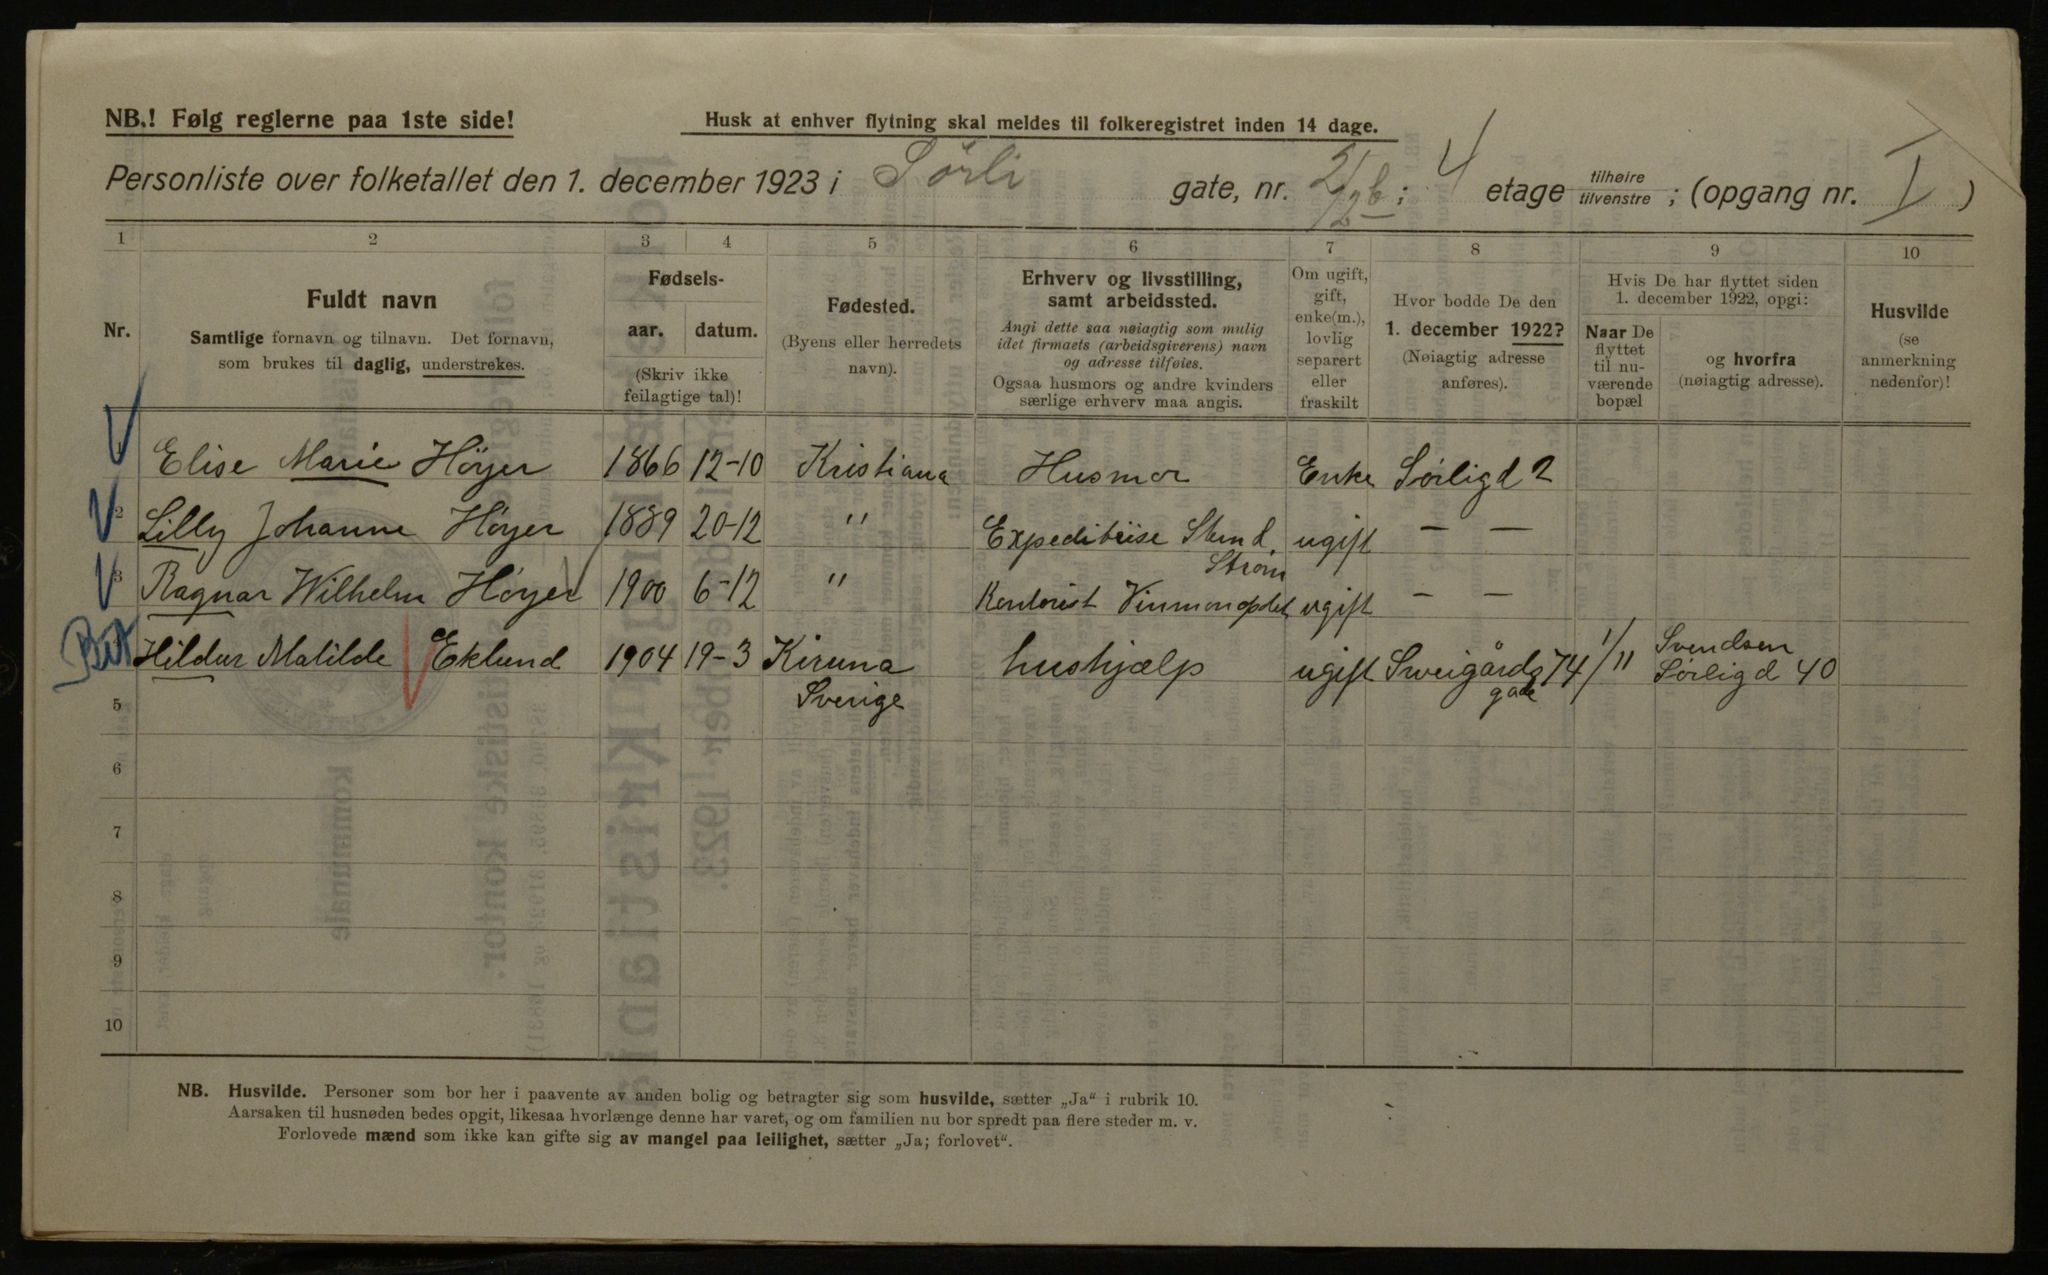 NB.! Følg reglerne paa 1ste side!
Husk at enhver flytning skal meldes til folkeregistret inden 14 dage.
Personliste over folketallet den 1. december 1923 i Sørli gate, nr. 2 ; 4 etage tilhøire tilvenstre ; (opgang nr. I )
1 2 3 4 5 6 7 8 9 10
Nr.
Fuldt navn
Samtlige fornavn og tilnavn. Det fornavn,
som brukes til daglig, understrekes.
Fødsels-
aar. datum.
(Skriv ikke
feilagtige tal)!
Fødested.
(Byens eller herredets
navn).
Erhverv og livsstilling,
samt arbeidssted.
Angi dette saa nøiagtig som mulig
idet firmaets (arbeidsgiverens) navn
og adresse tilføies.
Ogsaa husmors og andre kvinders
særlige erhverv maa angis.
Om ugift,
gift,
enke(m.),
lovlig
separert
eller
fraskilt
Hvor bodde De den
1. december 1922?
(Nøiagtig adresse
anføres).
Hvis De har flyttet siden
1. december 1922, opgi:
Naar De
flyttet
til nu-
værende
bopæl
og hvorfra
(nøiagtig adresse).
Husvilde
(se
anmerkning
nedenfor)!
1 Elise Marie Höyer 1866 12-10 Kristiana Husmor Enke Sörligd 2
2 Lilly Johanne Höyer 1889 20-12 " Expeditrise Steen &
Strøm ugift — —
3 Ragnar Wilhelm Höyer 1900 6-12 " Kontorist Vinmonopolet ugift — —
Hildur Matilde Eklund 1904 19-3 Kiruna
Sverige hushjælp ugift Sweigårds 74
gade 1/11 Svendsen
Sörligd 40
5
6
7
8
9
10
NB. Husvilde. Personer som bor her i paavente av anden bolig og betragter sig som husvilde, sætter „Ja" i rubrik 10.
Aarsaken til husnøden bedes opgit, likesaa hvorlænge denne har varet, og om familien nu bor spredt paa flere steder m. v.
Forlovede mænd som ikke kan gifte sig av mangel paa leilighet, sætter „Ja; forlovet".